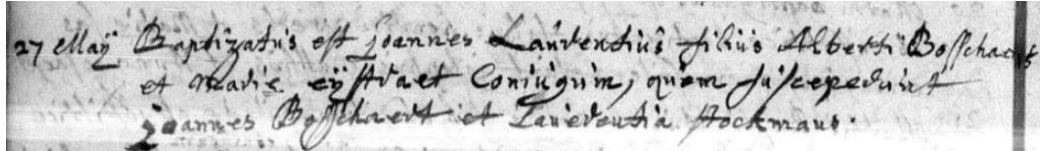 27 Maÿ Baptizatus est Joannes Laurentius filius Alberti Bosschaerts
et Marie eÿstraet Coniugum, quem susceperunt
Joannes Bosschaert et Laurentia stockmans.